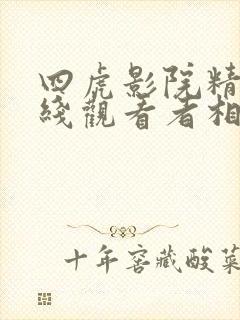 四虎影院精
线觀看者相
十年窖藏酸菜